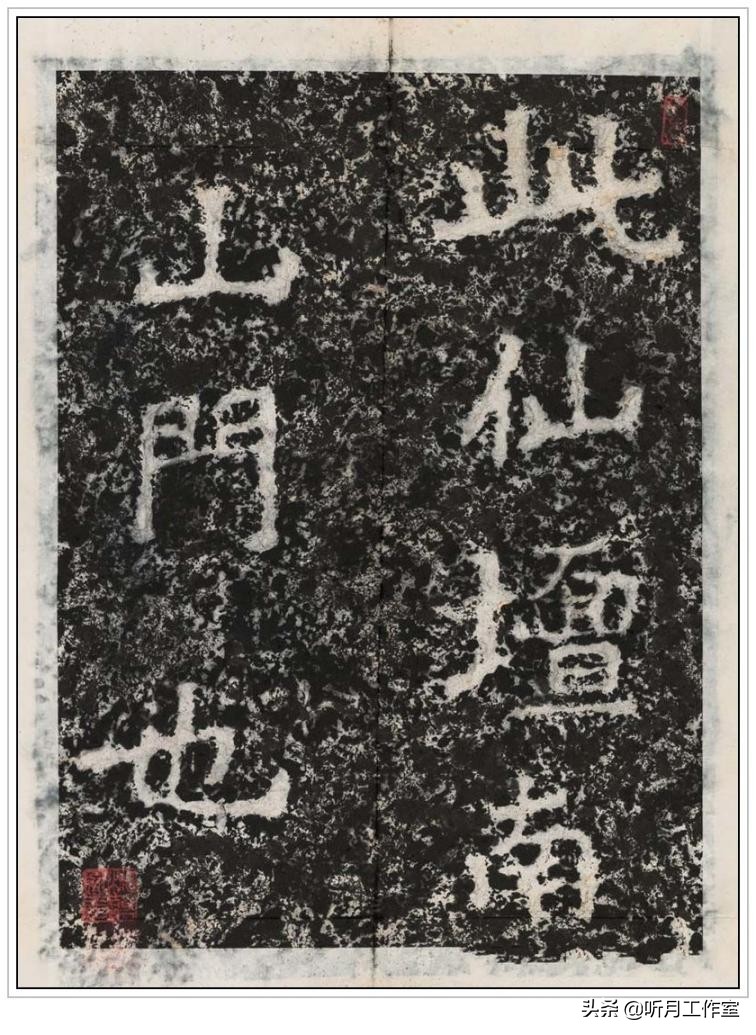 此仙壇南
山門也
头条 @听月工作室